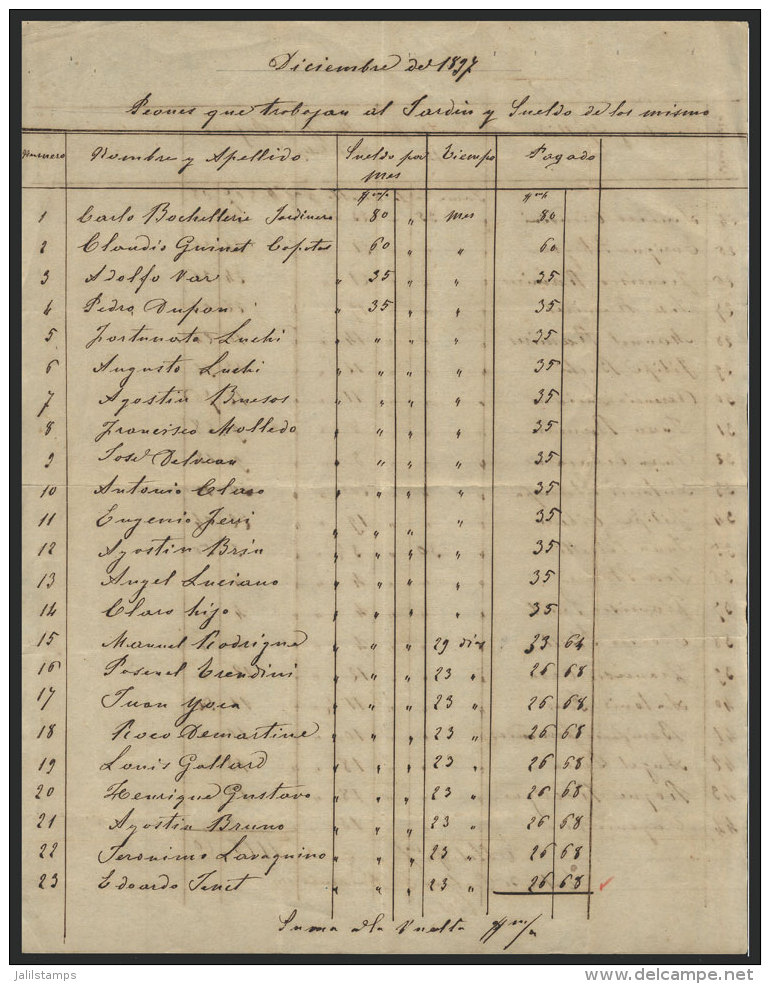 Diciembre del 1897
Peones que trabajan al Jardin y Sueldo de los mismo
Numero Nombre y Apellido Sueldo por mes Tiempo Pagado
$m/n $m/n
1 Carlo Bochellerie Jardinero 80 " mes 80
2 Claudio Guinet Capatas 60 " " 60
3 Adolfo Var " 35 " " 35
4 Pedro Dupon " 35 " " 35
5 Fortunato Luchi " " " " 35
6 Augusto Luchi " " " " 35
7 Agostin Buesos " " " " 35
8 Francisco Molledo " " " " 35
9 José Delvean " " " 35
10 Antonio Claro " " " " 35
11 Eugenio Ferri " " " " 35
12 Agostin Brin " " " " 35
13 Angel Luciano " " " " 35
14 Claro hijo " " " " 35
15 Manuel Rodrigue " " " 29 dias 33 64
16 Trendini " " " 23 " 26 68
17 Juan Yoca " " " 23 " 26 68
18 Roco Demartine " " " 23 " 26 68
19 Louis Gallard " " " 23 " 26 68
20 Henrique Gustavo " " " 23 " 26 68
21 Agostin Bruno " " " 23 " 26 68
22 Jeronimo Lavagnino " " " 23 " 26 68
23 Edoardo Janet " " " 23 " 26 68
Suma a la Vuelta $m/n
jalilstamps
delcampe.net